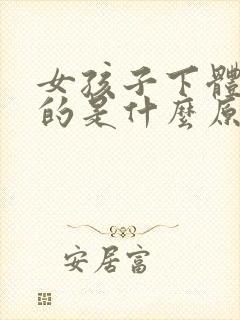 女孩子下體
的是什麼原
安居富